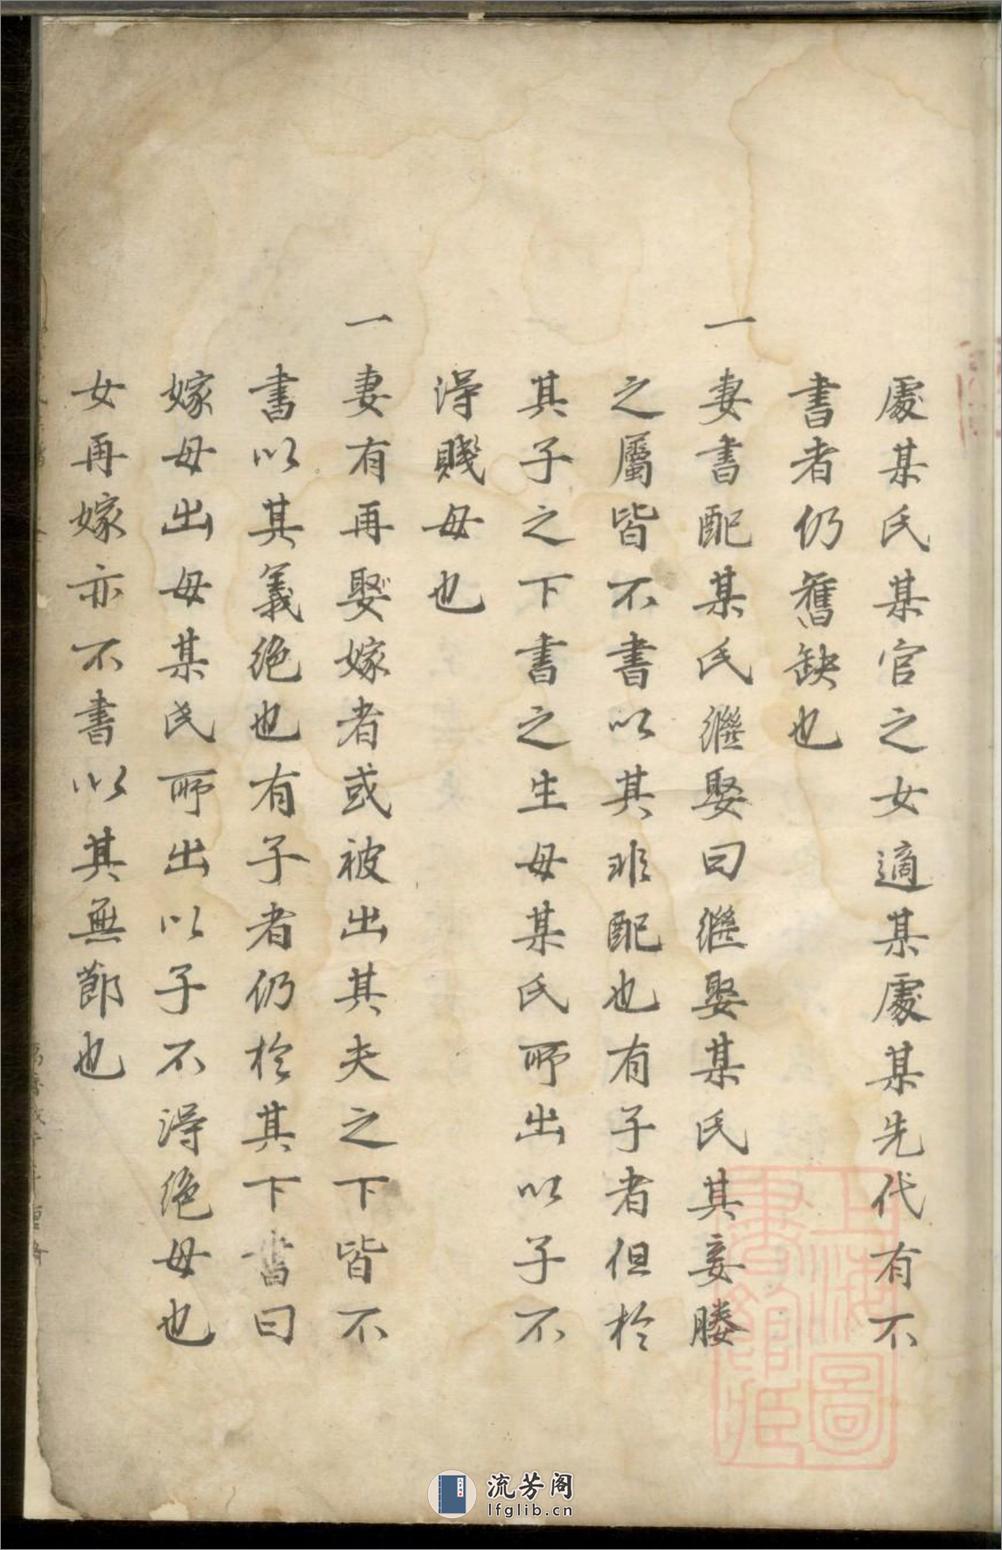 處某氏某官之女適某處某先代有不
書者仍舊缺也
一妻書配某氏繼娶曰繼娶某氏其妾媵
之屬皆不書以其非配也有子者但於
其子之下書之生母某氏所出以子不
得賤母也
一妻有再娶嫁者或被出其夫之下皆不
書以其義絶也有子者仍於其下書曰
嫁母出母某氏所出以子不得絶母也
女再嫁亦不書以其無節也
上海圖
書館藏
流芳阁
lfglib.cn